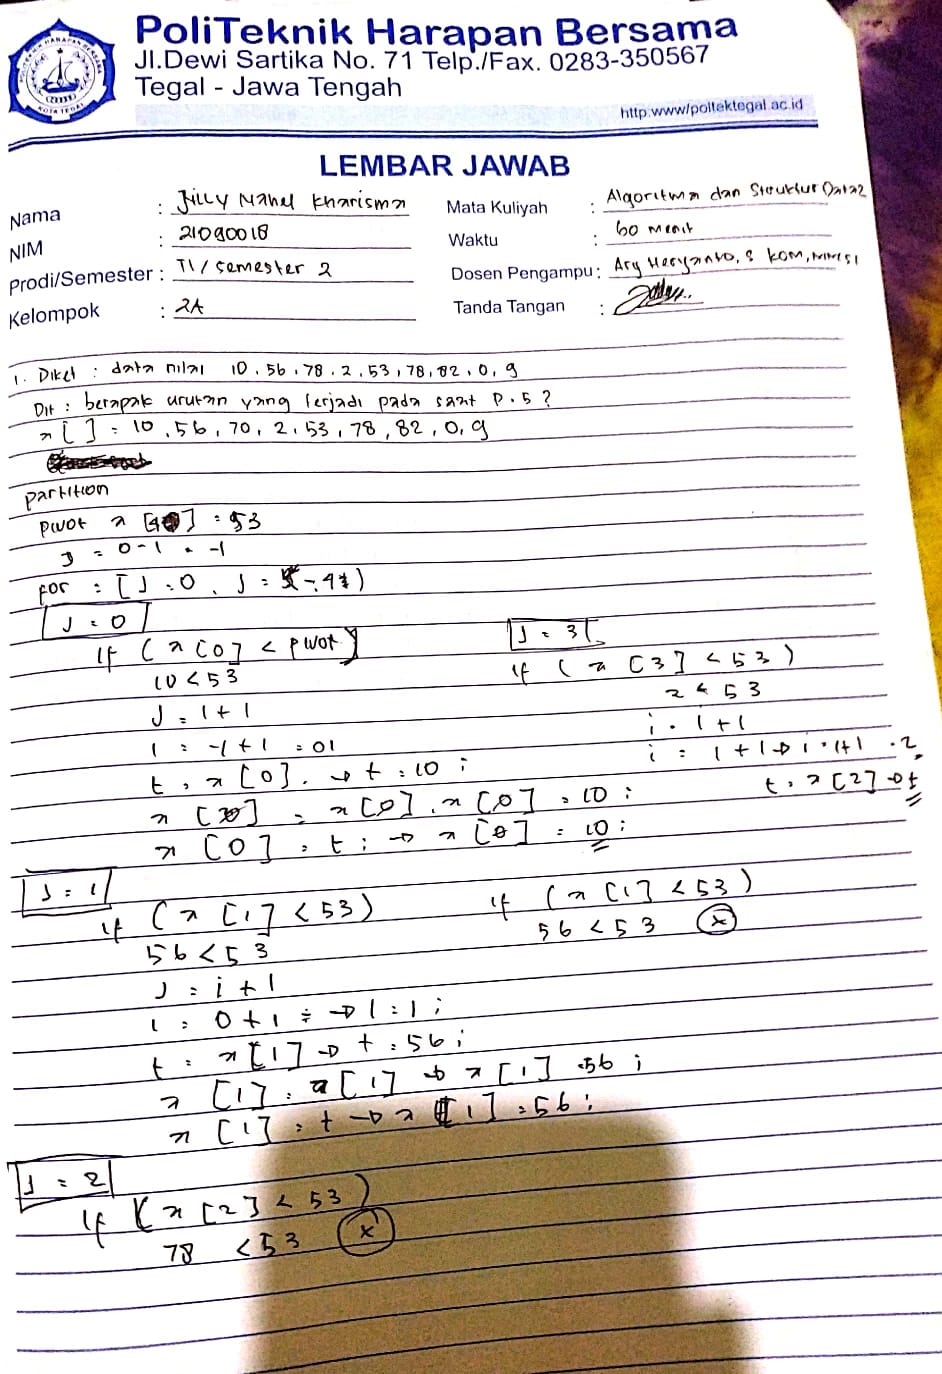 PoliTeknik Harapan Bersama
Jl.Dewi Sartika No. 71 Telp./Fax. 0283-350567
Tegal - Jawa Tengah
http:www/poltektegal.ac.id
LEMBAR JAWAB
Nama : Jilly Mahel Kharisma
NIM : 21090018
Prodi/Semester : TI / semester 2
Kelompok : 2A
Mata Kuliyah : Algoritma dan Struktur Data2
Waktu : 60 menit
Dosen Pengampu : Ary Heryanto, S KOM, MMSI
Tanda Tangan :
1. Diket : data nilai 10, 56, 78, 2, 53, 78, 82, 0, 9
Dit : berapak urutan yang terjadi pada saat P. 5 ?
x [ ] = 10, 56, 70, 2, 53, 78, 82, 0, 9
partition
pivot x [4] = 53
J = 0-1 = -1
for : [ J = 0, J =
J = 0
if ( x [0] < pivot )
10 < 53
J = 1 + 1
1 = -1 + 1 = 01
t = x [0] . → t = 10 ;
x [0] = x [0] . x [0] = 10 ;
x [0] = t ; → x [0] = 10 ;
J = 3
if ( x [3] < 53 )
2 < 53
i = 1 + 1
i = 1 + 1 → i = 1+1 = 2
t = x [2] → t
J = 1
if ( x [1] < 53 )
56 < 53
J = i + 1
1 = 0 + 1 = → 1 = 1 ;
t = x [1] → t = 56 ;
x [1] = x [1] → x [1] = 56 ;
x [1] = t → x [1] = 56 ;
if ( x [1] < 53 )
56 < 53 x
J = 2
if ( x [2] < 53 )
78 < 53 x